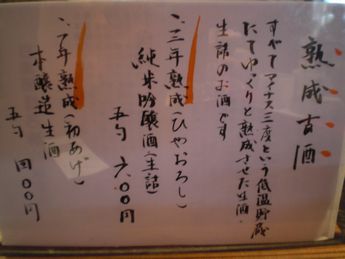 熟成古酒
すべてマイナス三度という低温貯蔵
にてゆっくりと熟成させた生酒、
生詰のお酒です
、三年熟成(ひやおろし)
純米吟醸酒(生詰)
五勺 六〇〇円
、七年熟成(初あげ)
本醸造生酒
五勺 四〇〇円